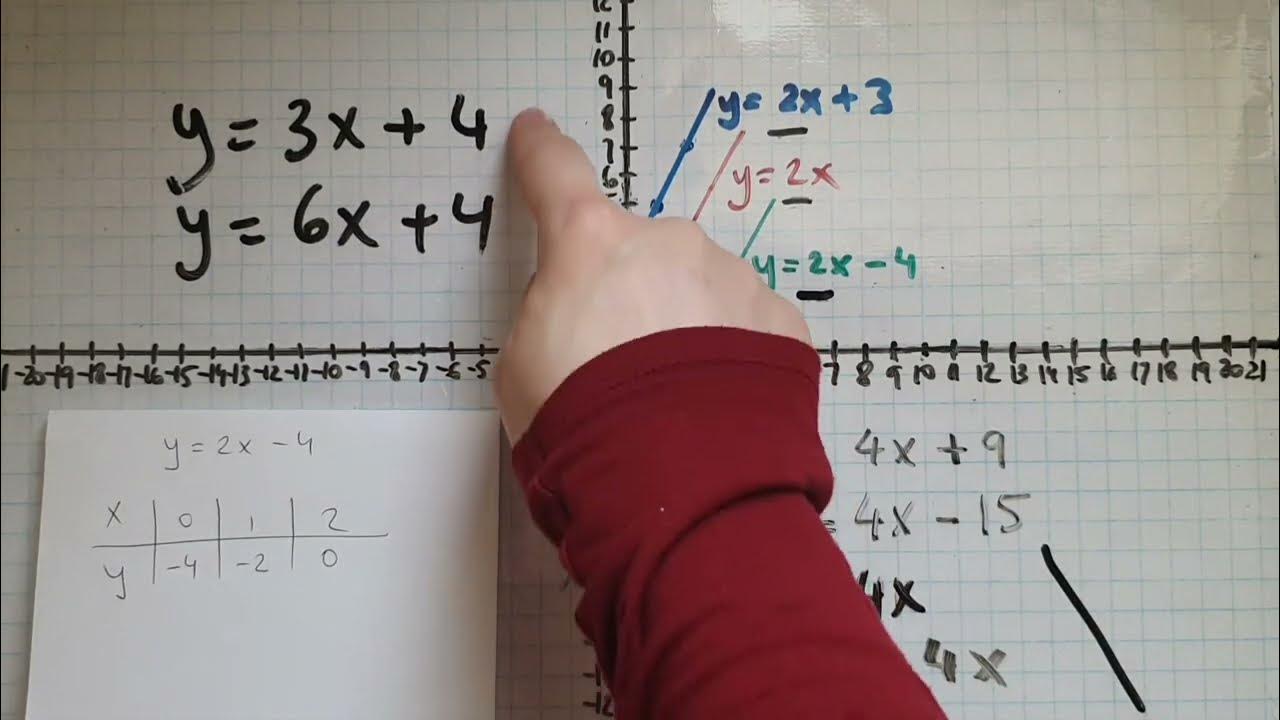 y = 3x + 4
y = 6x + 4
12
11
10
9
8
7
6
y = 2x + 3
y = 2x
y = 2x - 4
-20 -19 -18 -17 -16 -15 -14 -13 -12 -11 -10 -9 -8 -7 -6 -5
7 8 9 10 11 12 13 14 15 16 17 18 19 20 21
y = 2x - 4
x 0 1 2
y -4 -2 0
4x + 9
= 4x - 15
4x
4x
-12